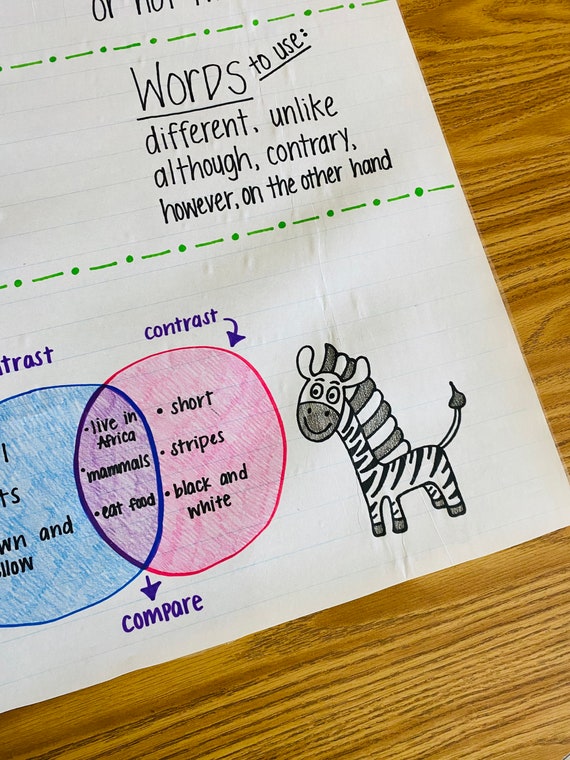 or not
Words to use:
different, unlike
although, contrary,
however, on the other hand
contrast
trast
• live in
Africa
• mammals
• eat food
• short
• stripes
• black and
white
l
ts
wn and
llow
compare